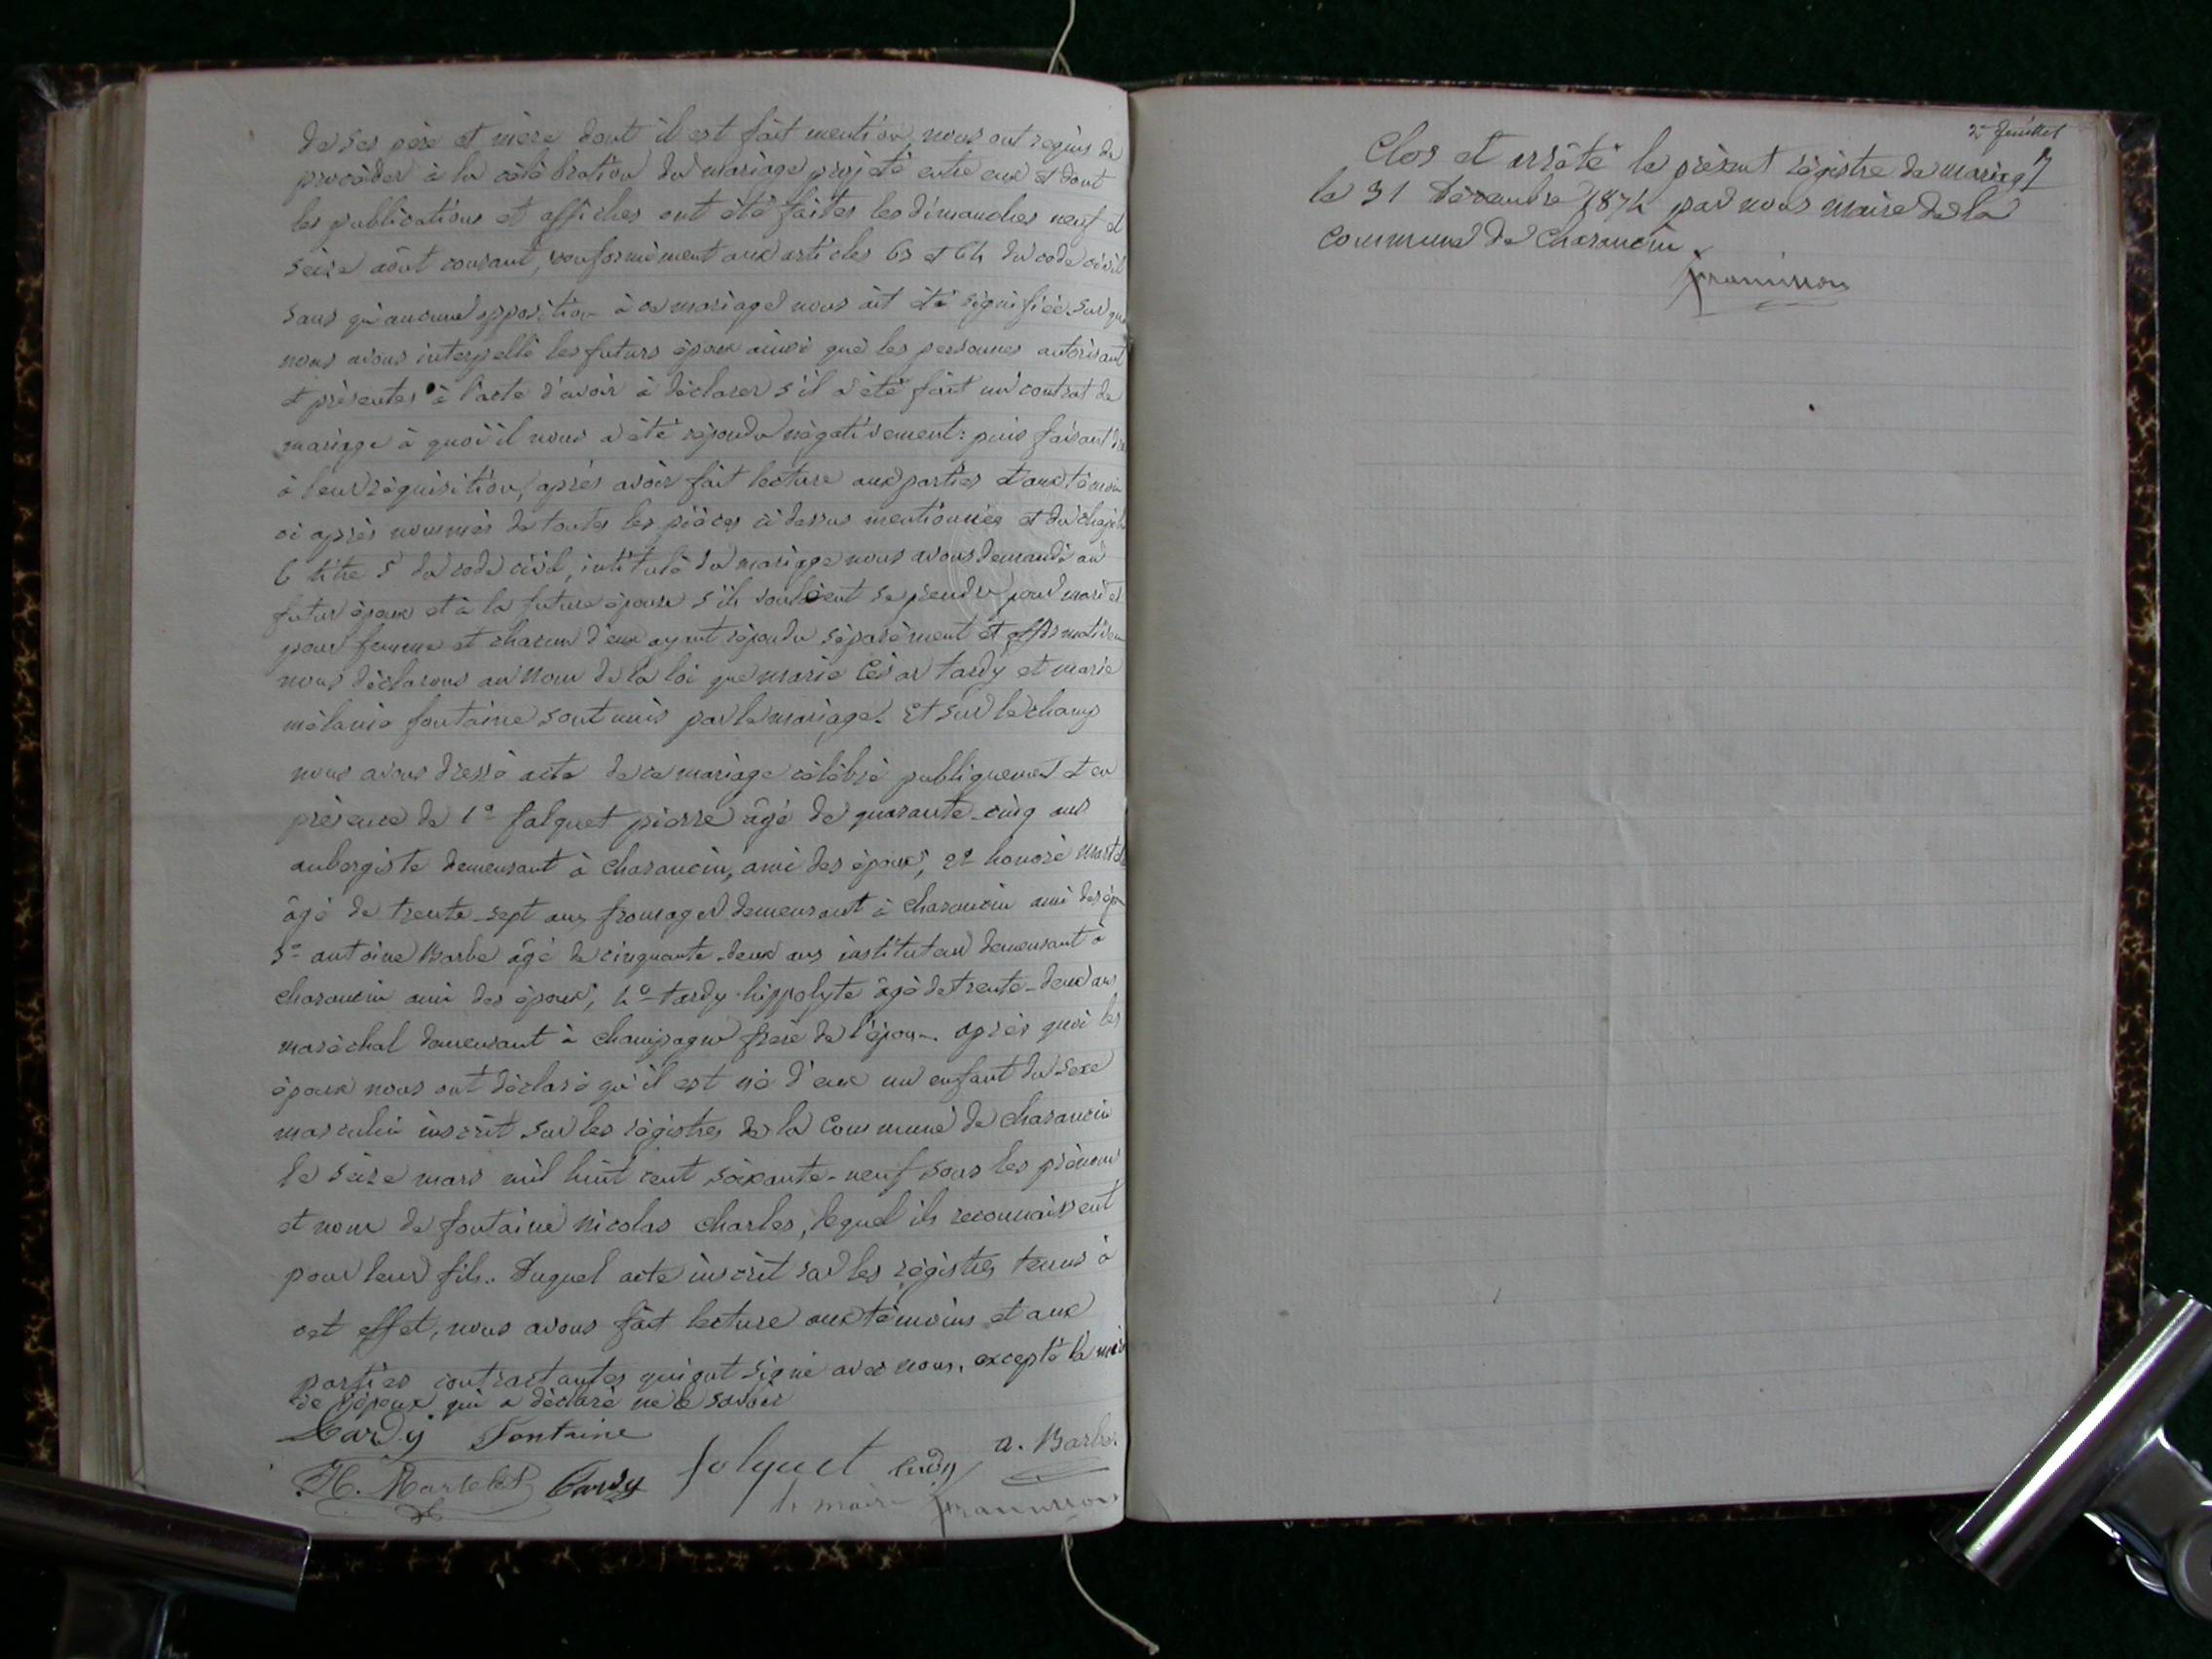 de ses père et mère dont il est fait mention, nous ont requis de
procéder à la célébration du mariage projeté entre eux et dont
les publications et affiches ont été faites les dimanches neuf et
seize août courant, conformément aux articles 63 et 64 du code civil
sans qu'aucune opposition à ce mariage nous ait été signifiée. Sur quoi
nous avons interpellé les futurs époux ainsi que les personnes autorisant
et présentes à l'acte d'avoir à déclarer s'il a été fait un contrat de
mariage à quoi il nous a été répondu négativement: puis faisant
à leur réquisition, après avoir fait lecture aux parties et aux témoin
ci après nommés de toutes les pièces ci dessus mentionnées et du chapit
6 titre 5 du code civil, intitulé du mariage nous avons demandé au
futur époux et à la future épouse s'ils veulent se prendre pour mari et
pour femme et chacun d'eux ayant répondu séparément et affirmativem
nous déclarons au nom de la loi que marie César tardy et marie
mélanie fontaine sont unis par le mariage. Et sur le champ
nous avons dressé acte de ce mariage célébré publiquement et en
présence de 1º falquet pierre âgé de quarante-cinq ans
aubergiste demeurant à charancin, ami des époux, 2º honoré martel
âgé de trente-sept ans fromager demeurant à charancin ami des épo
3º antoine Barbe âgé de cinquante-deux ans instituteur demeurant à
charancin ami des époux, 4º tardy hippolyte âgé de trente-deux ans
maréchal demeurant à champagne frère de l'époux. après quoi les
époux nous ont déclaré qu'il est né d'eux un enfant du sexe
masculin inscrit sur les régistres de la Commune de charancin
le seize mars mil huit cent soixante-neuf sous les prénoms
et nom de fontaine nicolas charles, lequel ils reconnaissent
pour leur fils. Duquel acte inscrit sur les régistres tenus à
cet effet, nous avons fait lecture aux témoins et aux
parties contractantes qui ont signé avec nous, excepté la mère
de l'époux qui a déclaré ne le savoir
Tardy Fontaine
a. Barbe
H. Martelet Tardy falquet tardy
le maire
2e feuillet
7
Clos et arrêté le présent régistre de mariage
le 31 Décembre 1874 par nous maire de la
Commune de Charancin.